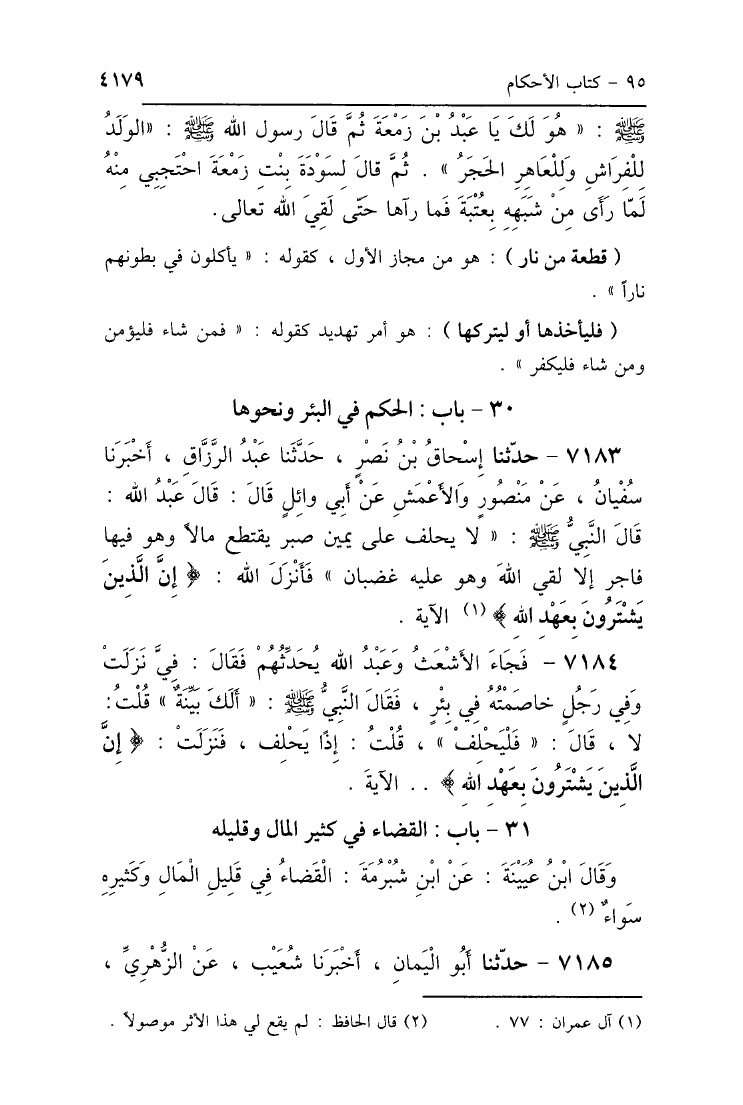 ٩٥ - كتاب الأحكام ٤١٧٩
ﷺ : « هُوَ لَكَ يَا عَبْدُ بْنَ زَمْعَةَ ثُمَّ قَالَ رسول الله ﷺ : «الوَلَدُ
لِلْفِرَاشِ وَلِلْعَاهِرِ الحَجَرُ » . ثُمَّ قَالَ لِسَوْدَةَ بِنْتِ زَمْعَةَ احْتَجِبِي مِنْهُ
لَمّا رَأَى مِنْ شَبَهِهِ بِعُتْبَةَ فَما رآها حَتَّى لَقِيَ الله تعالى.
( قطعة من نار ) : هو من مجاز الأول ، كقوله : « يأكلون في بطونهم
ناراً » .
( فليأخذها أو ليتركها ) : هو أمر تهديد كقوله : « فمن شاء فليؤمن
ومن شاء فليكفر » .
٣٠ - باب : الحكم في البئر ونحوها
٧١٨٣ - حدّثنا إِسْحاقُ بْنُ نَصْرٍ ، حَدَّثَنا عَبْدُ الرَّزَّاقِ ، أَخْبَرَنا
سُفْيانُ ، عَنْ مَنْصُورٍ وَالأَعْمَشِ عَنْ أَبِي وائِلٍ قَالَ : قَالَ عَبْدُ الله :
قَالَ النَّبِيُّ ﷺ : « لا يحلف على يمين صبر يقتطع مالاً وهو فيها
فاجر إلا لقي اللهَ وهو عليه غضبان » فَأَنْزَلَ الله : ﴿ إِنَّ الَّذِينَ
يَشْتَرُونَ بِعَهْدِ اللهِ ﴾ (١) الآية .
٧١٨٤ - فَجَاءَ الأَشْعَثُ وَعَبْدُ الله يُحَدِّثُهُمْ فَقَالَ : فِيَّ نَزَلَتْ
وَفِي رَجُلٍ خاصَمْتُهُ فِي بِئْرٍ ، فَقَالَ النَّبِيُّ ﷺ : « أَلَكَ بَيِّنَةٌ » قُلْتُ :
لا ، قَالَ : « فَلْيَحْلِفْ » ، قُلْتُ : إِذًا يَحْلِف ، فَنَزَلَتْ : ﴿ إِنَّ
الَّذِينَ يَشْتَرُونَ بِعَهْدِ اللهِ ﴾ . . الآيةَ .
٣١ - باب : القضاء في كثير المال وقليله
وَقَالَ ابْنُ عُيَيْنَةَ : عَنْ ابْنِ شُبْرُمَةَ : الْقَضاءُ فِي قَلِيلِ الْمَالِ وَكَثِيرِهِ
سَواءٌ (٢) .
٧١٨٥ - حدّثنا أَبُو الْيَمانِ ، أَخْبَرَنا شُعَيْب ، عَنْ الزُّهْرِيِّ ،
(١) آل عمران : ٧٧ . (٢) قال الحافظ : لم يقع لي هذا الأثر موصولاً .